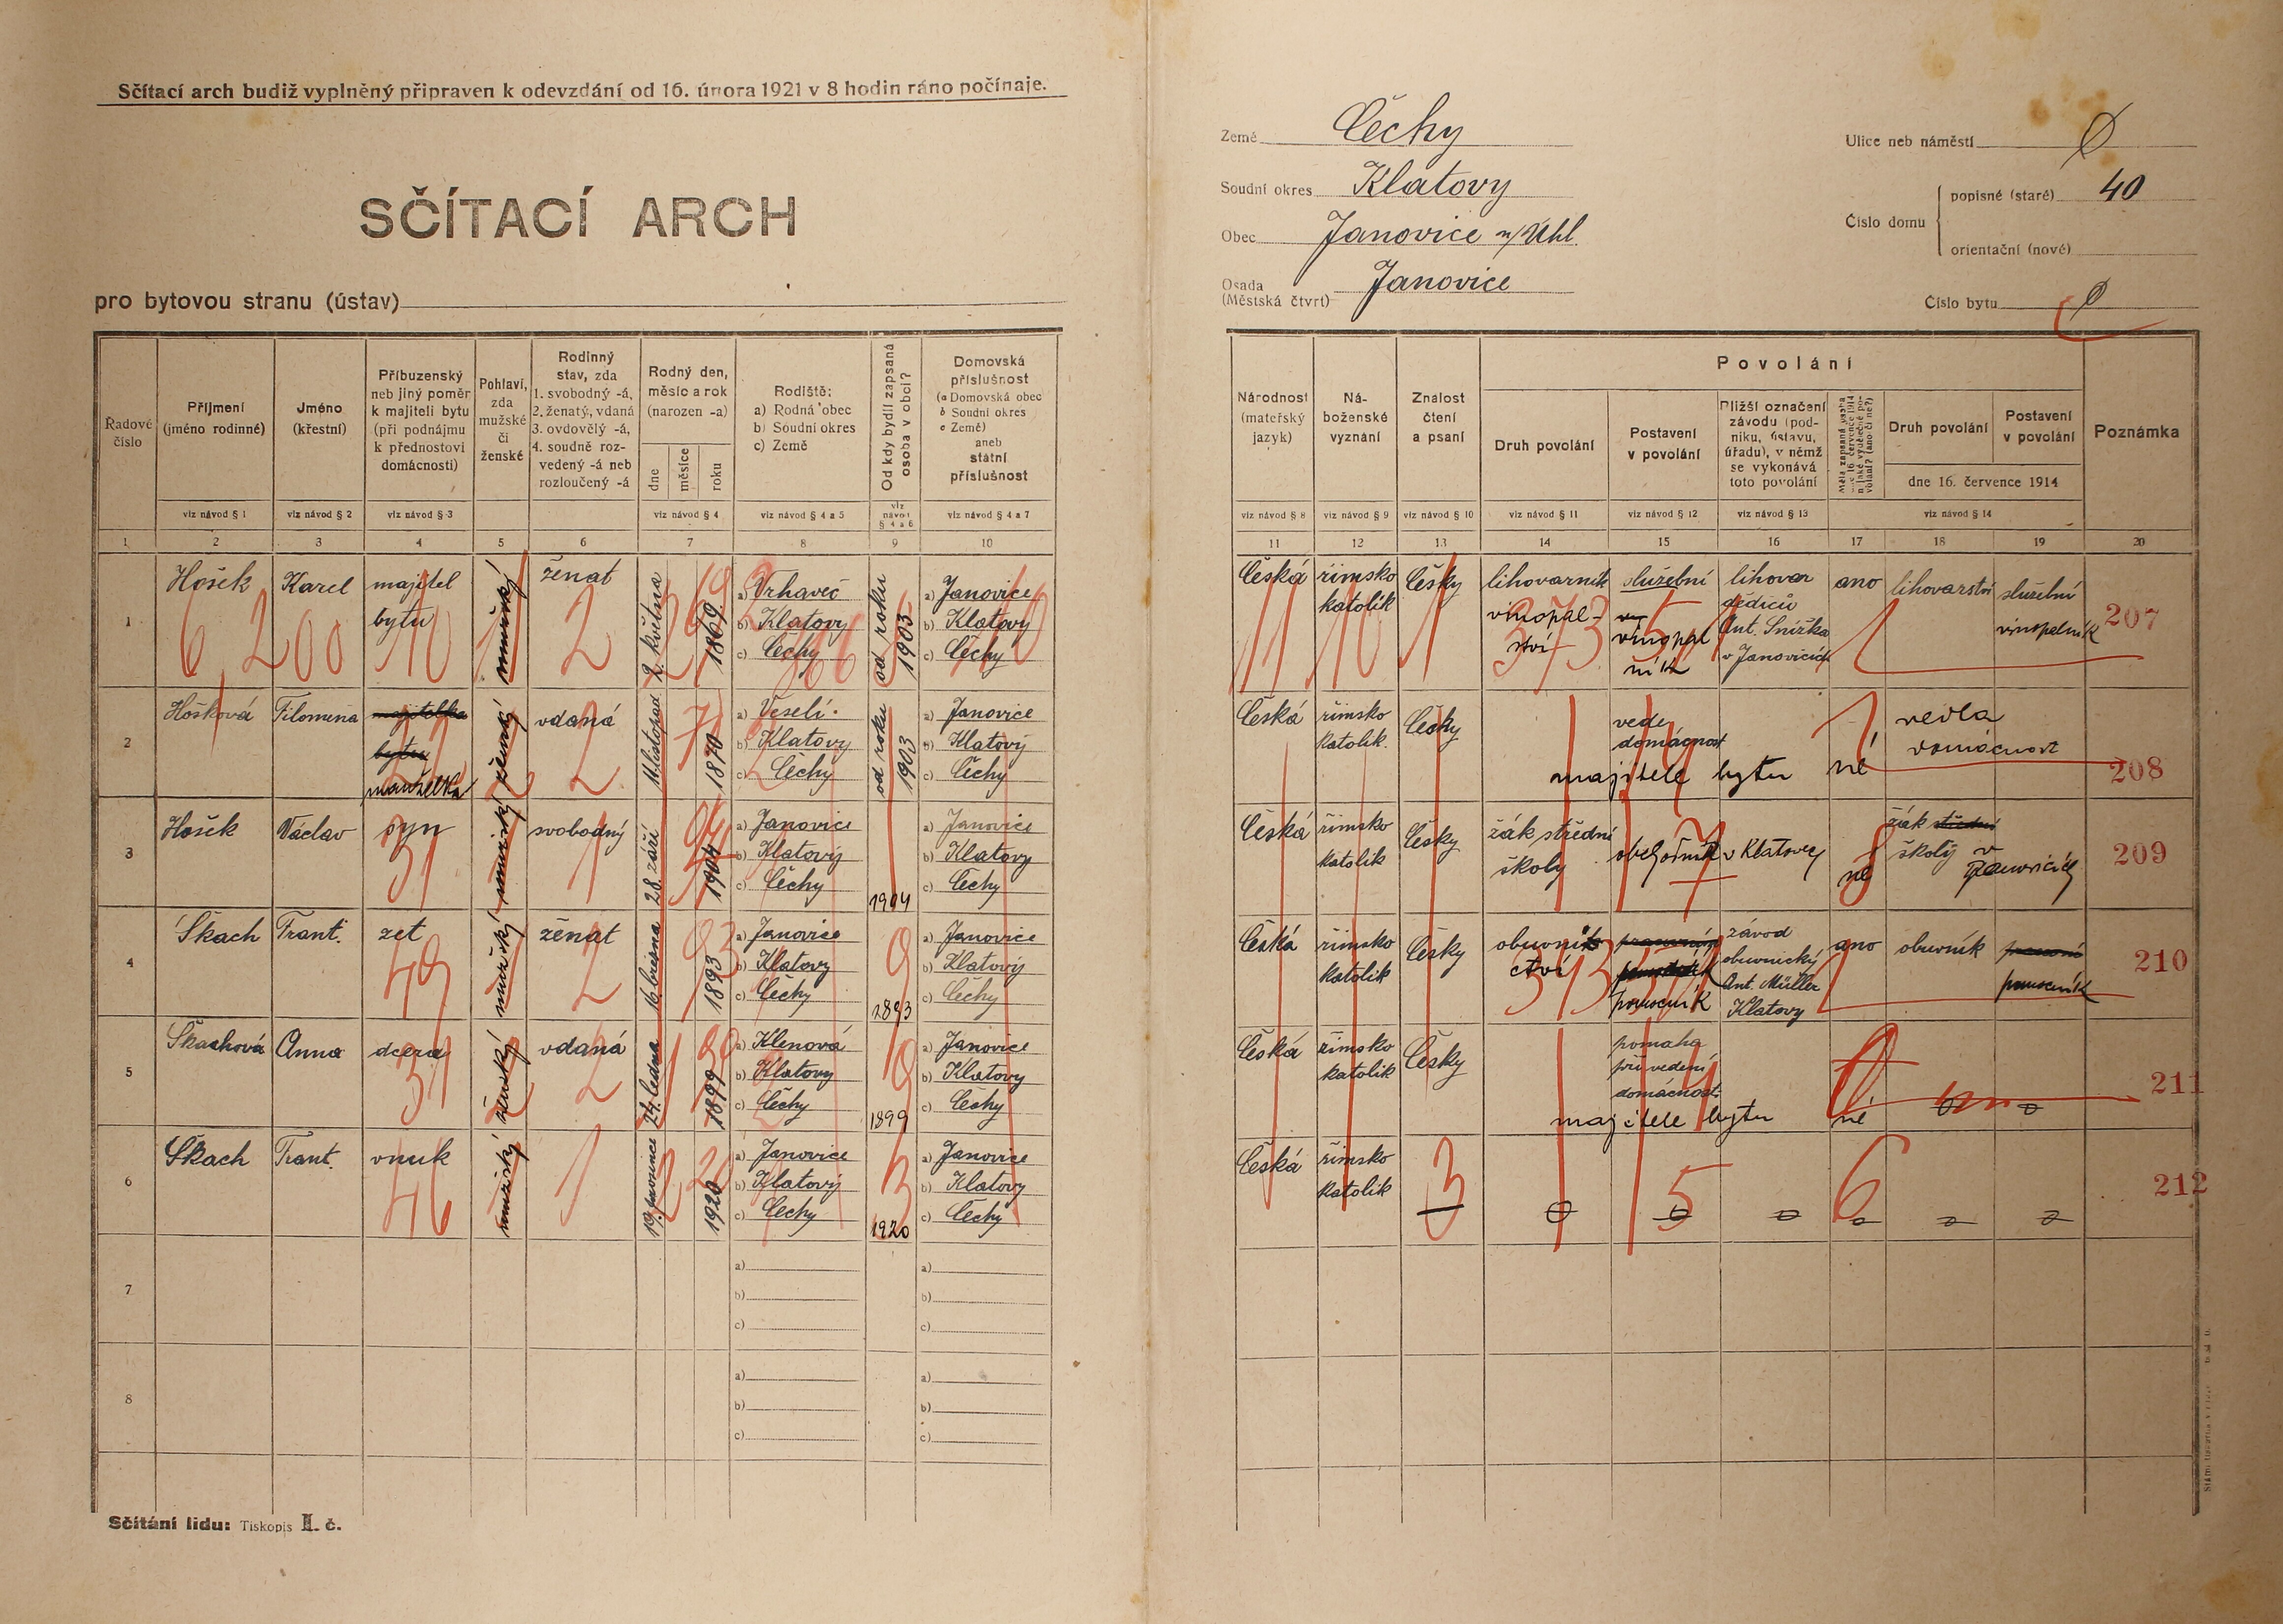 Sčítací arch budiž vyplněný připraven k odevzdání od 16. února 1921 v 8 hodin ráno počínaje.
SČÍTACÍ ARCH
pro bytovou stranu (ústav)
Země Čechy
Soudní okres Klatovy
Obec Janovice n/Uhl.
Osada (Městská čtvrť) Janovice
Ulice neb náměstí 0
Číslo domu
popisné (staré) 40
orientační (nové)
Číslo bytu 0
Řadové číslo
Příjmení (jméno rodinné)
viz návod § 1
Jméno (křestní)
viz návod § 2
Příbuzenský neb jiný poměr k majiteli bytu (při podnájmu k přednostovi domácnosti)
viz návod § 3
Pohlaví, zda mužské či ženské
Rodinný stav, zda
1. svobodný -á,
2. ženatý, vdaná
3. ovdovělý -á,
4. soudně rozvedený -á neb rozloučený -á
Rodný den, měsíc a rok (narozen -a)
dne měsíce roku
viz návod § 4
Rodiště:
a) Rodná obec
b) Soudní okres
c) Země
viz návod § 4 a 5
Od kdy bydlí zapsaná osoba v obci?
viz návod § 4 a 6
Domovská příslušnost
(a Domovská obec
b Soudní okres
c Země)
aneb státní příslušnost
viz návod § 4 a 7
Národnost (mateřský jazyk)
viz návod § 8
Náboženské vyznání
viz návod § 9
Znalost čtení a psaní
viz návod § 10
Povolání
Druh povolání
viz návod § 11
Postavení v povolání
viz návod § 12
Bližší označení závodu (podniku, ústavu, úřadu), v němž se vykonává toto povolání
viz návod § 13
Druh povolání
Postavení v povolání
dne 16. července 1914
viz návod § 14
Poznámka
1 2 3 4 5 6 7 8 9 10 11 12 13 14 15 16 17 18 19 20
1 Hošek Karel majitel bytu mužský ženat 2. května 1869
a) Vrhaveč b) Klatovy c) Čechy
od roku 1903
a) Janovice b) Klatovy c) Čechy
Česká římsko katolík Česky lihovarník vinopalství služební vinopalník
lihovar dědiců Ant. Snížka v Janovicích
ano lihovarství služební vinopalník 207
2 Hošková Filomena majitelka bytu manželka ženský vdaná 11. listopad 1870
a) Veselí b) Klatovy c) Čechy
od roku 1903
a) Janovice b) Klatovy c) Čechy
Česká římsko katolík. Česky vede domácnost
majitele bytu né vedla domácnost 208
3 Hošek Václav syn mužský svobodný 28. září 1904
a) Janovice b) Klatovy c) Čechy
1904
a) Janovice b) Klatovy c) Čechy
Česká římsko katolík Česky žák střední školy v Klatovech
né žák střední školy v Janovicích 209
4 Škach Frant. zeť mužský ženat 16. března 1893
a) Janovice b) Klatovy c) Čechy
1893
a) Janovice b) Klatovy c) Čechy
Česká římsko katolík Česky obuvnictví pomocník
závod obuvnický Ant. Müller Klatovy
ano obuvník pomocník 210
5 Škachová Anna dcera ženský vdaná 24. ledna 1899
a) Klenová b) Klatovy c) Čechy
1899
a) Janovice b) Klatovy c) Čechy
Česká římsko katolík Česky pomaha při vedení domácnost.
majitele bytu né 0 0 211
6 Škach Frant. vnuk mužský 19. prosince 1920
a) Janovice b) Klatovy c) Čechy
1920
a) Janovice b) Klatovy c) Čechy
Česká římsko katolík – 0 0 0 0 0 0 212
7 a) b) c) a) b) c)
8 a) b) c) a) b) c)
Sčítání lidu: Tiskopis I. č.